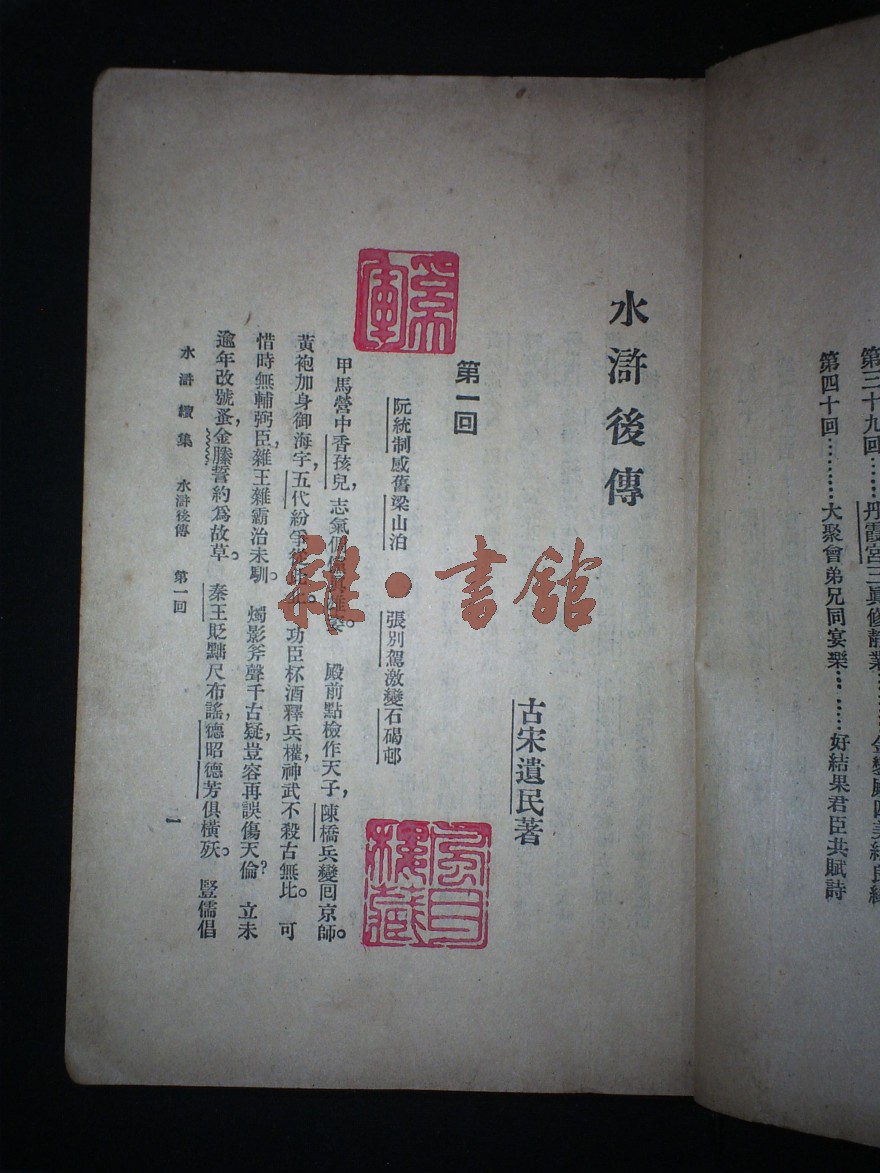 第三十九回……丹霞宮三眞修靜業……金鑾殿四美結良緣
第四十回………大聚會弟兄同宴樂……好結果君臣共賦詩
水滸後傳
古宋遺民著
第一回
阮統制感舊梁山泊　張別駕激變石碣邨
甲馬營中香孩兒，志氣倜儻眞雄姿。　殿前點檢作天子，陳橋兵變囘京師。
黃袍加身御海宇，五代紛爭從此止。　功臣杯酒釋兵權，神武不殺古無比。　可
惜時無輔弼臣，雜王雜霸治未馴。　燭影斧聲千古疑，豈容再誤傷天倫？　立未
逾年改號蚤，金縢誓約爲故草。　秦王貶黜尺布謠，德昭德芳俱橫殀。　豎儒倡
水滸續集　水滸後傳　第一回　一
雜・書館